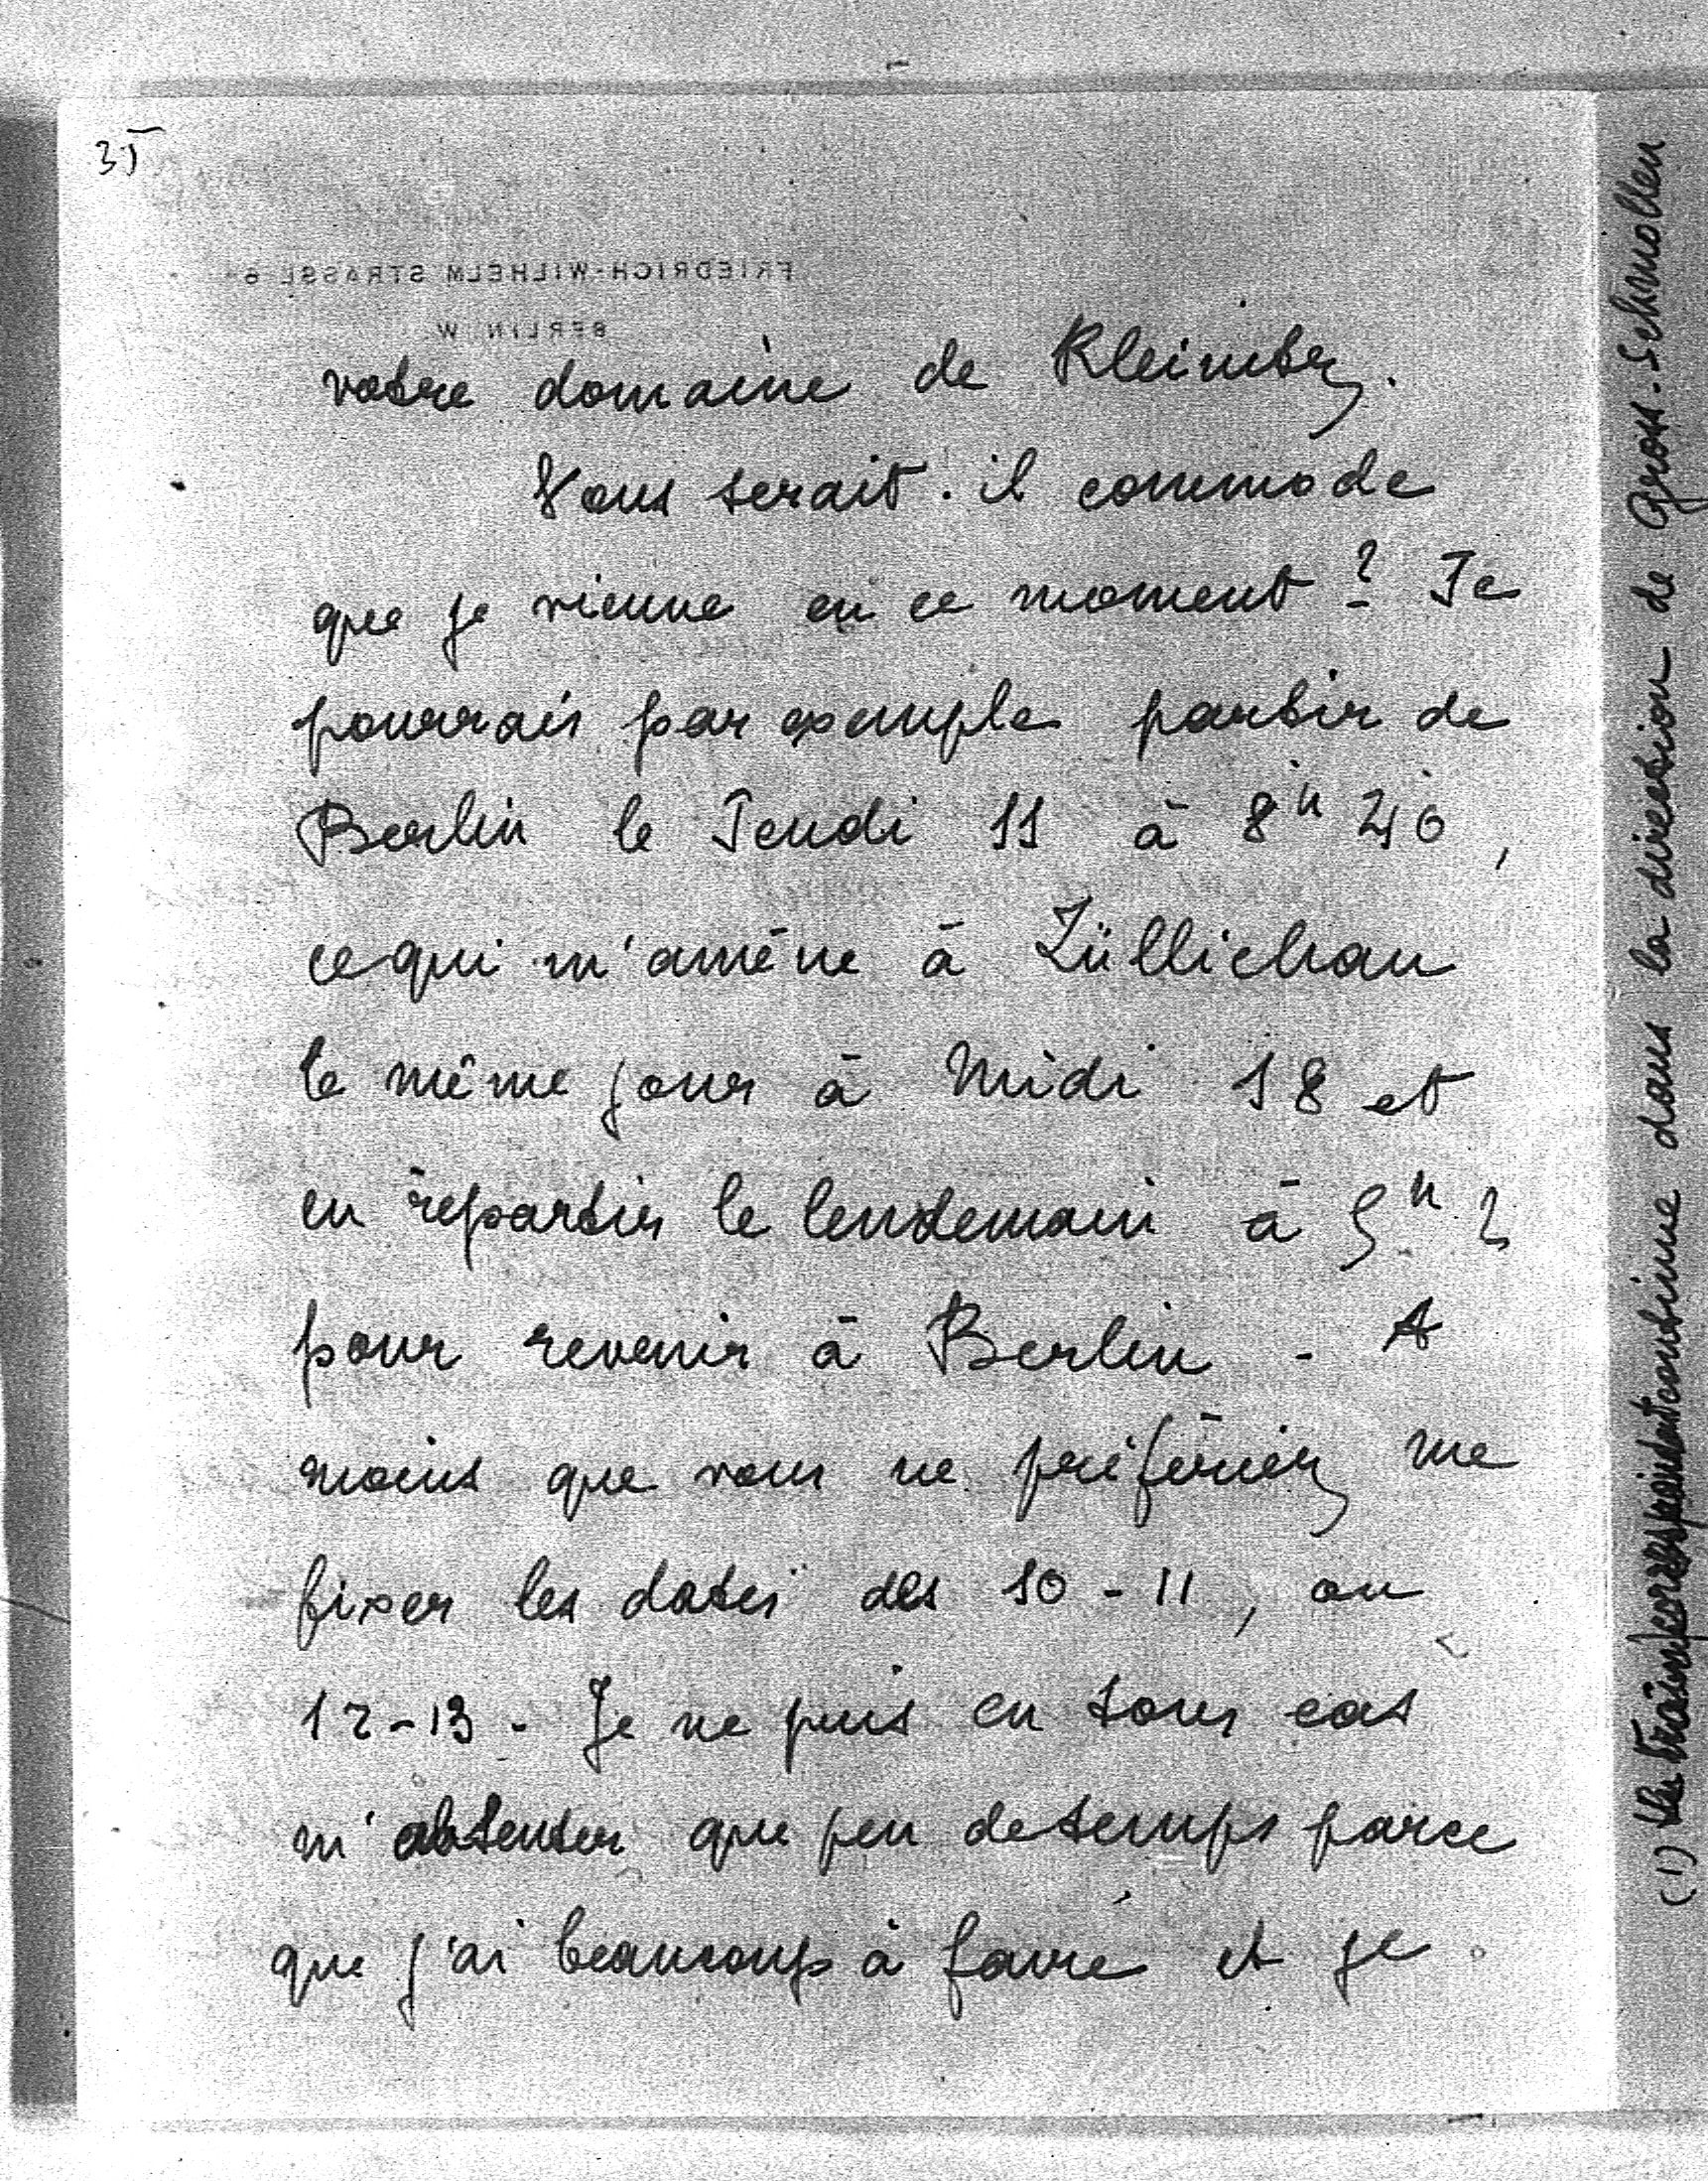 3)
FRIEDRICH-WILHELM STRASSE 6
BERLIN W
votre domaine de Kleinitz.
Vous serait-il commode
que je vienne en ce moment ? Je
pourrais par exemple partir de
Berlin le Jeudi 11 à 8h 40,
ce qui m'amène à Züllichau
le même jour à Midi 18 et
en repartir le lendemain à 5h 2
pour revenir à Berlin - A
moins que vous ne préfériez me
fixer les dates des 10-11, ou
12-13 - Je ne puis en tous cas
m'absenter que peu de temps parce
que j'ai beaucoup à faire et je
(1) continue dans la direction de Gross-Schmöllen